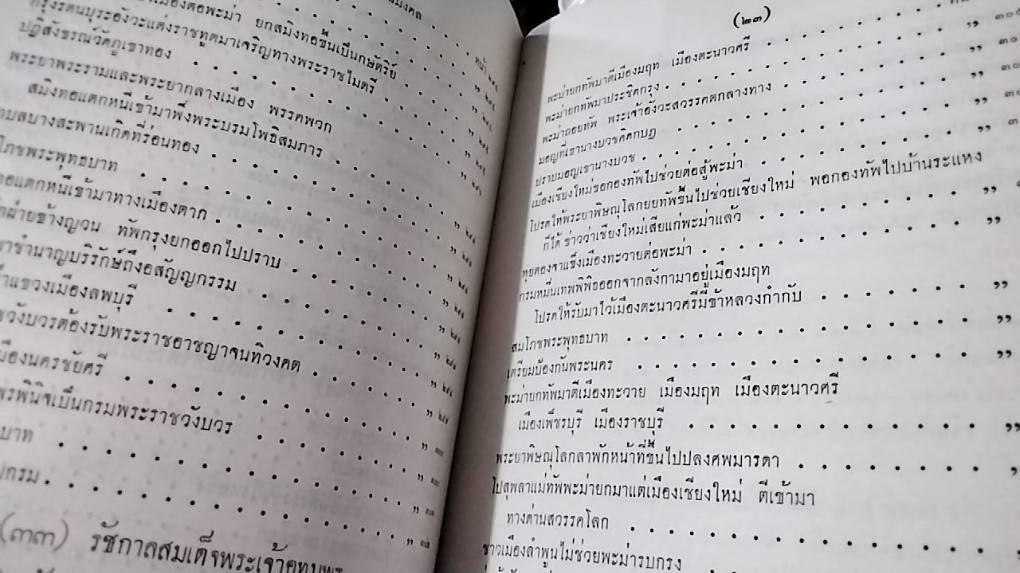 เมืองต่อพะม่า ยกสมิงทอขึ้นเป็นกษัตริย์
กรุงรัตนบุระอังวะแต่งราชทูตมาเจริญทางพระราชไมตรี
ปฏิสังขรณ์วัดภูเขาทอง
พระยาพระรามและพระยากลางเมือง พรรคพวก
สมิงทอแตกหนีเข้ามาพึ่งพระบรมโพธิสมภาร
บางสะพานเกิดที่ร่อนทอง
โภชพระพุทธบาท
ทอแตกหนีเข้ามาทางเมืองตาก
ฝ่ายข้างญวน ทัพกรุงยกออกไปปราบ
ชำนาญบริรักษ์ถึงอสัญญกรรม
แขวงเมืองลพบุรี
วังบวรต้องรับพระราชอาชญาจนทิวงคต
เมืองนครชัยศรี
พรพินิจเป็นกรมพระราชวังบวร
บาท
กรม
(๓๓) รัชกาลสมเด็จพระเจ้า
(๒๓)
พะม่ายกทัพมาตีเมืองมฤท เมืองตะนาวศรี
พะม่ายกทัพมาประชิดกรุง
พะม่าถอยทัพ พระเจ้าอังวะสวรรคตกลางทาง
มอญที่เขานางบวชคิดกบฏ
ปราบมอญเขานางบวช
เมืองเชียงใหม่ขอกองทัพไปช่วยต่อสู้พะม่า
โปรดให้พระยาพิษณุโลกยกทัพขึ้นไปช่วยเชียงใหม่ พอกองทัพไปบ้านระแหง
ก็ได้ข่าวว่าเชียงใหม่เสียแก่พะม่าแล้ว
หุยตองจาแข็งเมืองทะวายต่อพะม่า
กรมหมื่นเทพพิพิธออกจากลังกามาอยู่เมืองมฤท
โปรดให้รับมาไว้เมืองตะนาวศรีมีข้าหลวงกำกับ
สมโภชพระพุทธบาท
เตรียมป้องกันพระนคร
พะม่ายกทัพมาตีเมืองทะวาย เมืองมฤท เมืองตะนาวศรี
เมืองเพ็ชรบุรี เมืองราชบุรี
พระยาพิษณุโลกลาพักหน้าที่ขึ้นไปปลงศพมารดา
โปสุพลาแม่ทัพพะม่ายกมาแต่เมืองเชียงใหม่ ตีเข้ามา
ทางด่านสวรรคโลก
ชาวเมืองลำพูนไม่ช่วยพะม่ารบกรุง